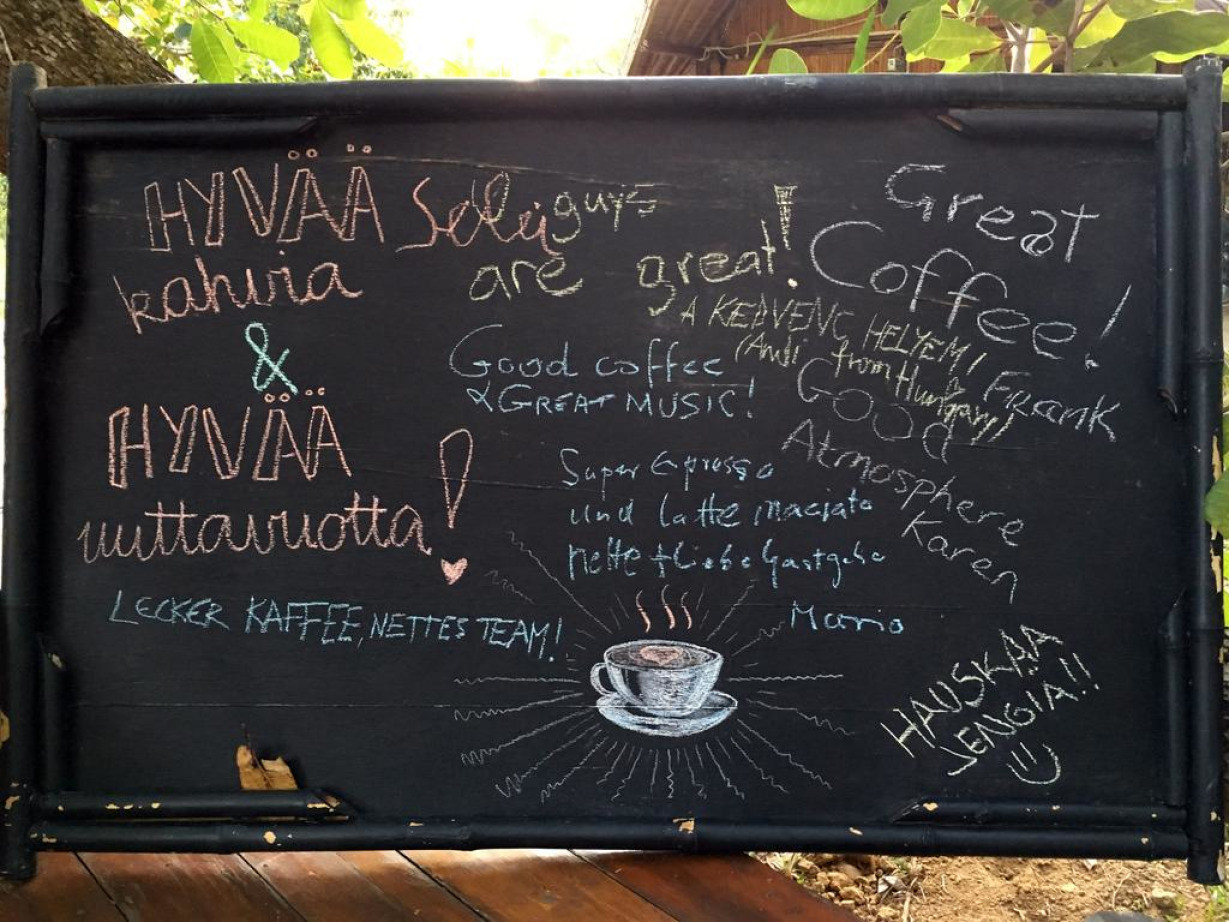 HYVÄÄ
kahvia
&
HYVÄÄ
uuttavuotta!
LECKER KAFFEE, NETTES TEAM!
guys
are great!
Good coffee
& GREAT MUSIC!
Super Espresso
und latte maciato
nette + liebe Gastgebe
Mario
Great
Coffee!
Frank
A KEDVENC HELYEM!
(Andi from Hungary)
Good
Atmosphere
Karen
HAUSKAA
JENGIA!!